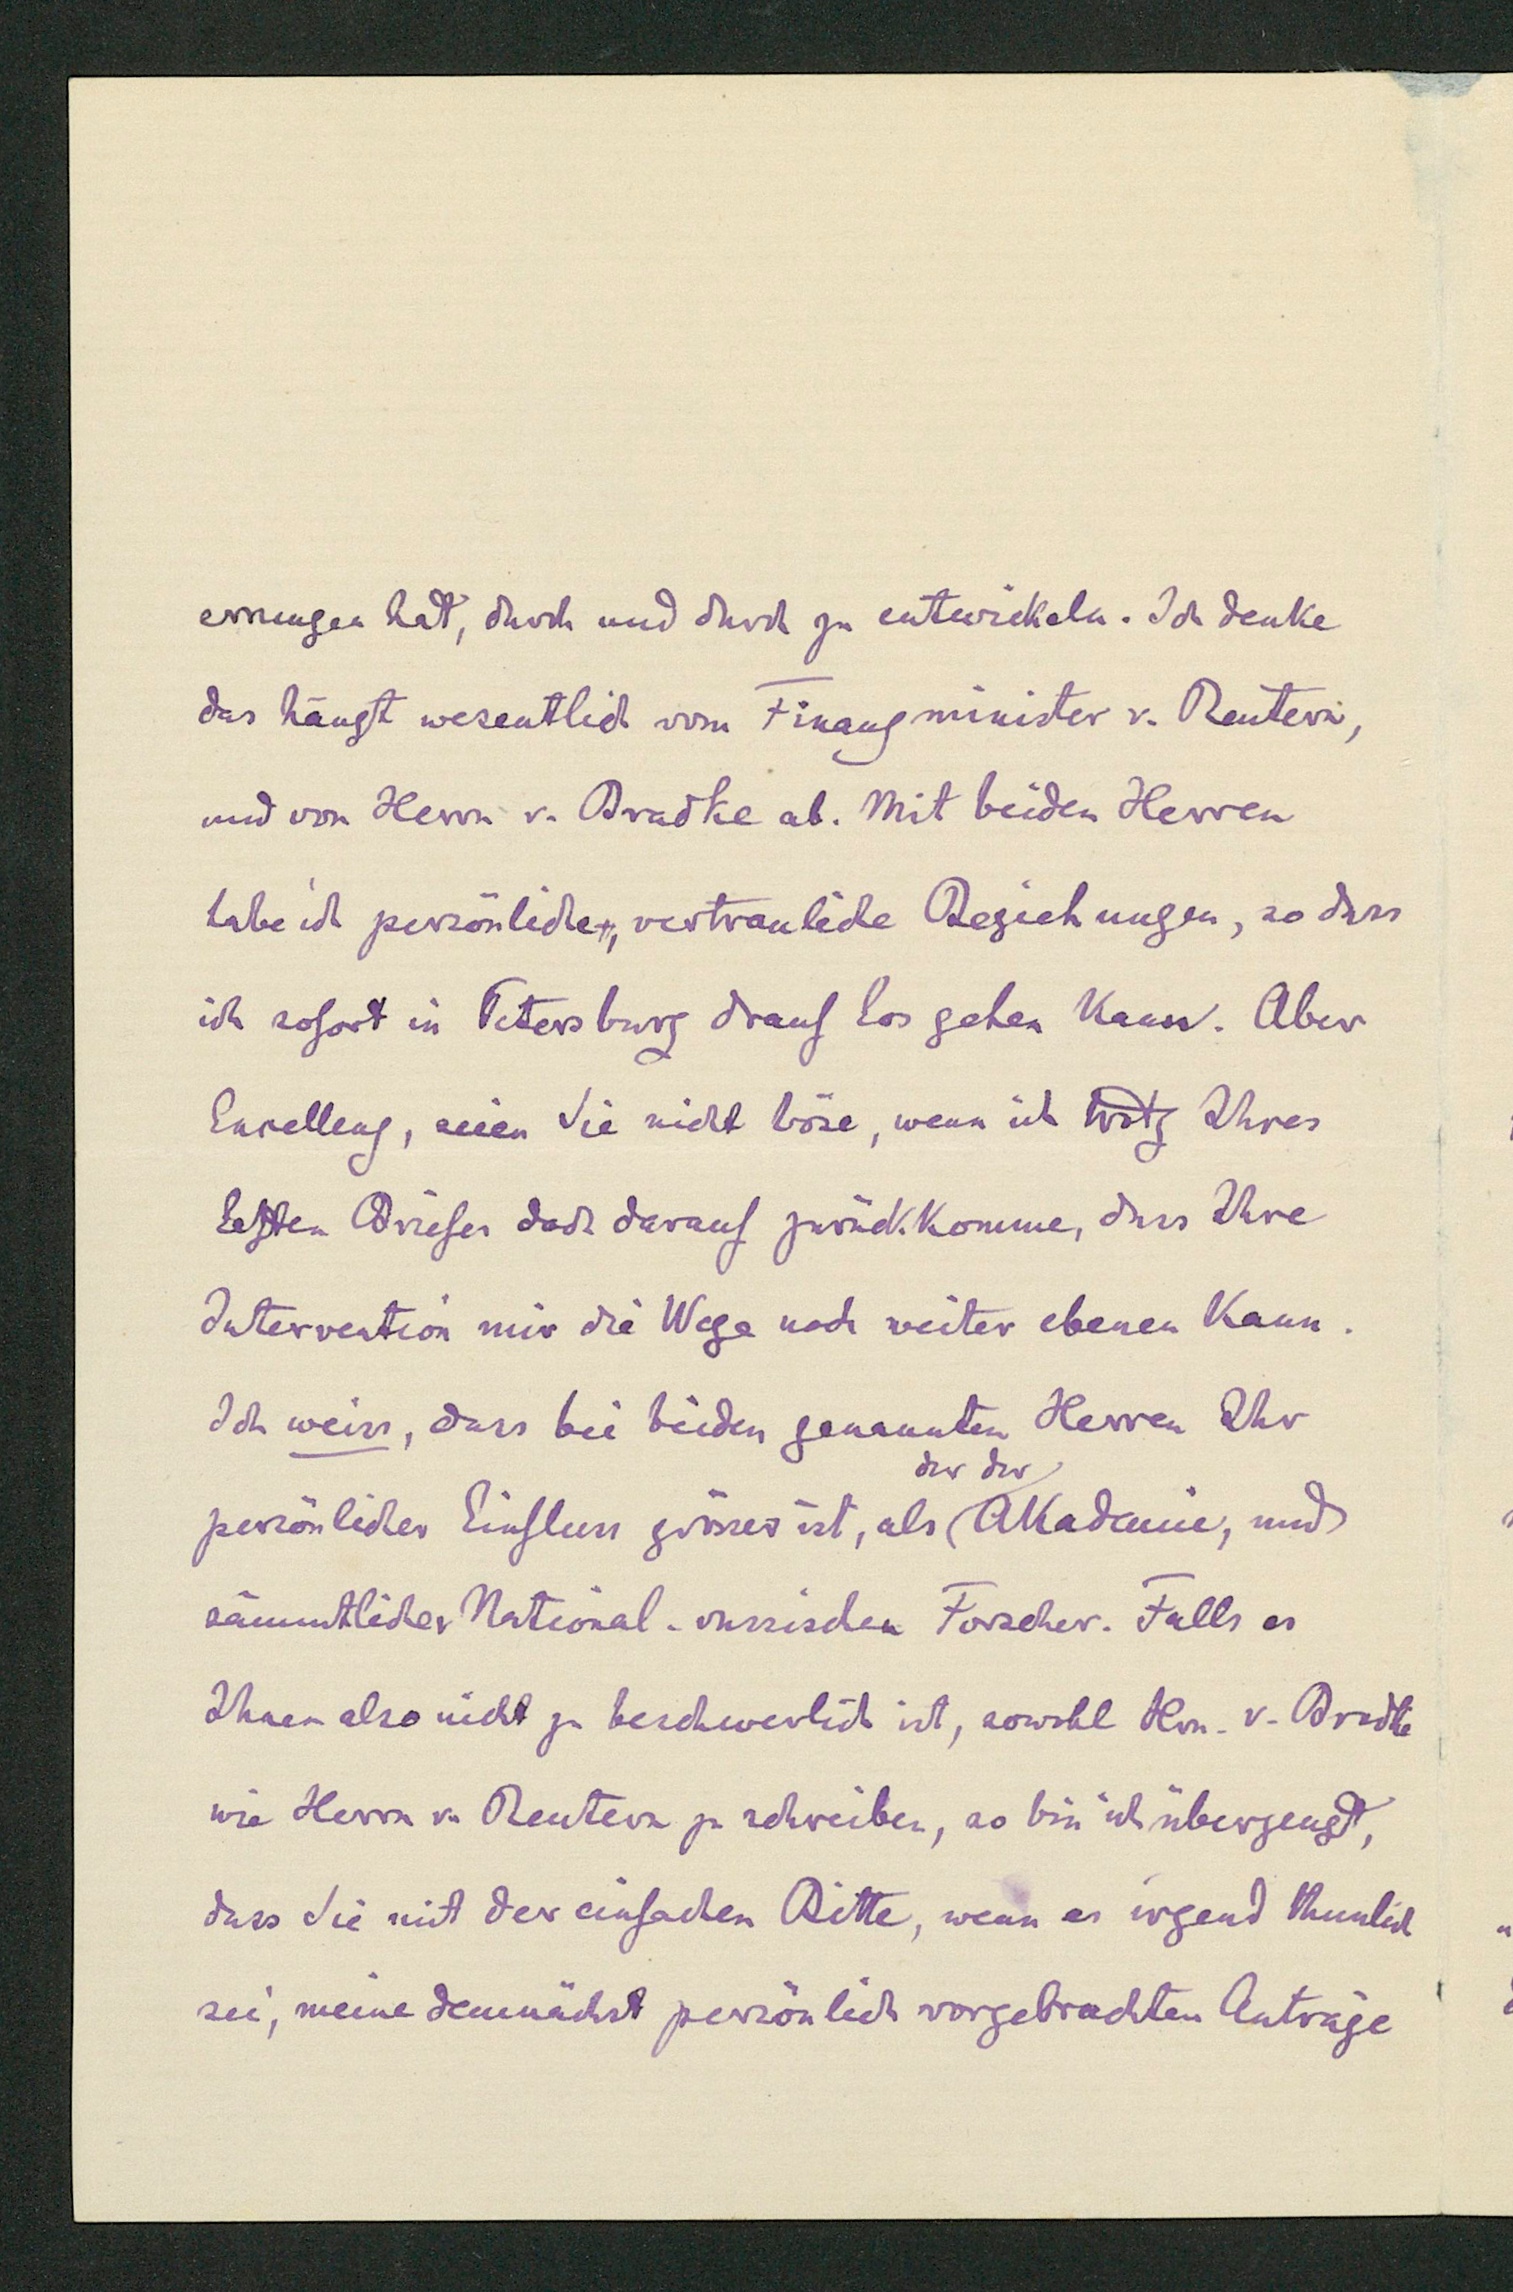 errungen hat, durch und durch zu entwickeln. Ich denke
das hängt wesentlich vom Finanzminister v. Reutern,
und von Herrn v. Bradke ab. Mit beiden Herren
habe ich persönliche, vertrauliche Beziehungen, so dass
ich sofort in Petersburg drauf los gehen kann. Aber
Excellenz, seien Sie nicht böse, wenn ich trotz Ihres
letzten Briefes doch darauf zurückkomme, dass Ihre
Intervention mir die Wege noch weiter ebenen kann.
Ich weiss, dass bei beiden genannten Herren Ihr
persönlicher Einfluss grösser ist, als der der Akademie, und
sämmtlicher National-russischen Forscher. Falls es
Ihnen also nicht zu beschwerlich ist, sowohl Hrn. v. Bradke
wie Herrn v. Reutern zu schreiben, so bin ich überzeugt,
dass Sie mit der einfachen Bitte, wenn es irgend thunlich
sei, meine demnächst persönlich vorgebrachten Anträge